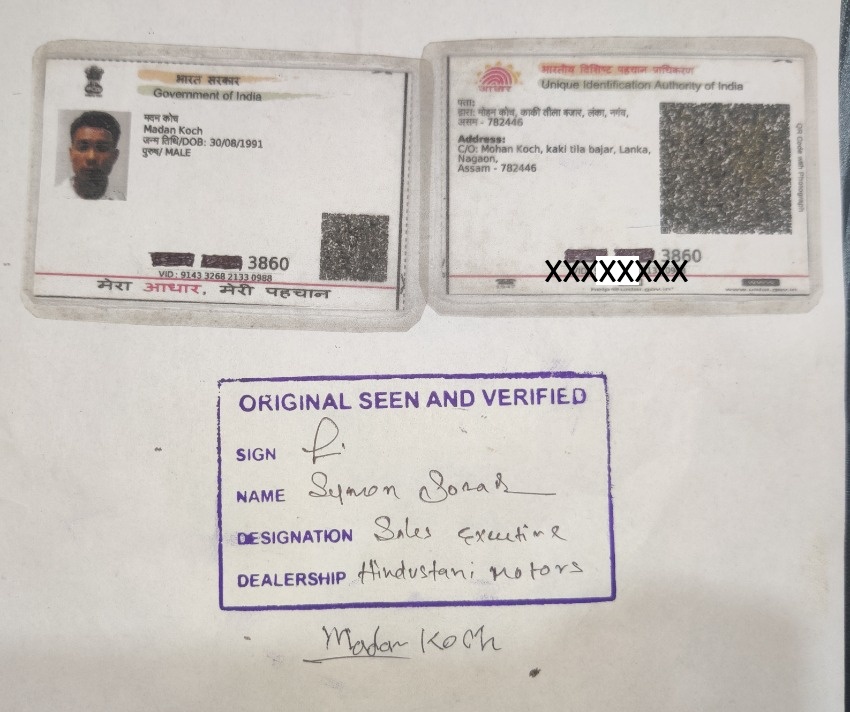 भारत सरकार
Government of India
मदन कोच
Madan Koch
जन्म तिथि/DOB: 30/08/1991
पुरुष/ MALE
3860
VID : 9143 3268 2133 0988
मेरा आधार, मेरी पहचान
भारतीय विशिष्ट पहचान प्राधिकरण
Unique Identification Authority of India
आधार
पता:
द्वारा: मोहन कोच, काकी तीला बजार, लंका, नगांव,
असम - 782446
Address:
C/O: Mohan Koch, kaki tila bajar, Lanka,
Nagaon,
Assam - 782446
QR Code with Photograph
3860
XXXXXXXX
ORIGINAL SEEN AND VERIFIED
SIGN
NAME Symon
DESIGNATION Sales Executive
DEALERSHIP Hindustani Motors
Madan Koch